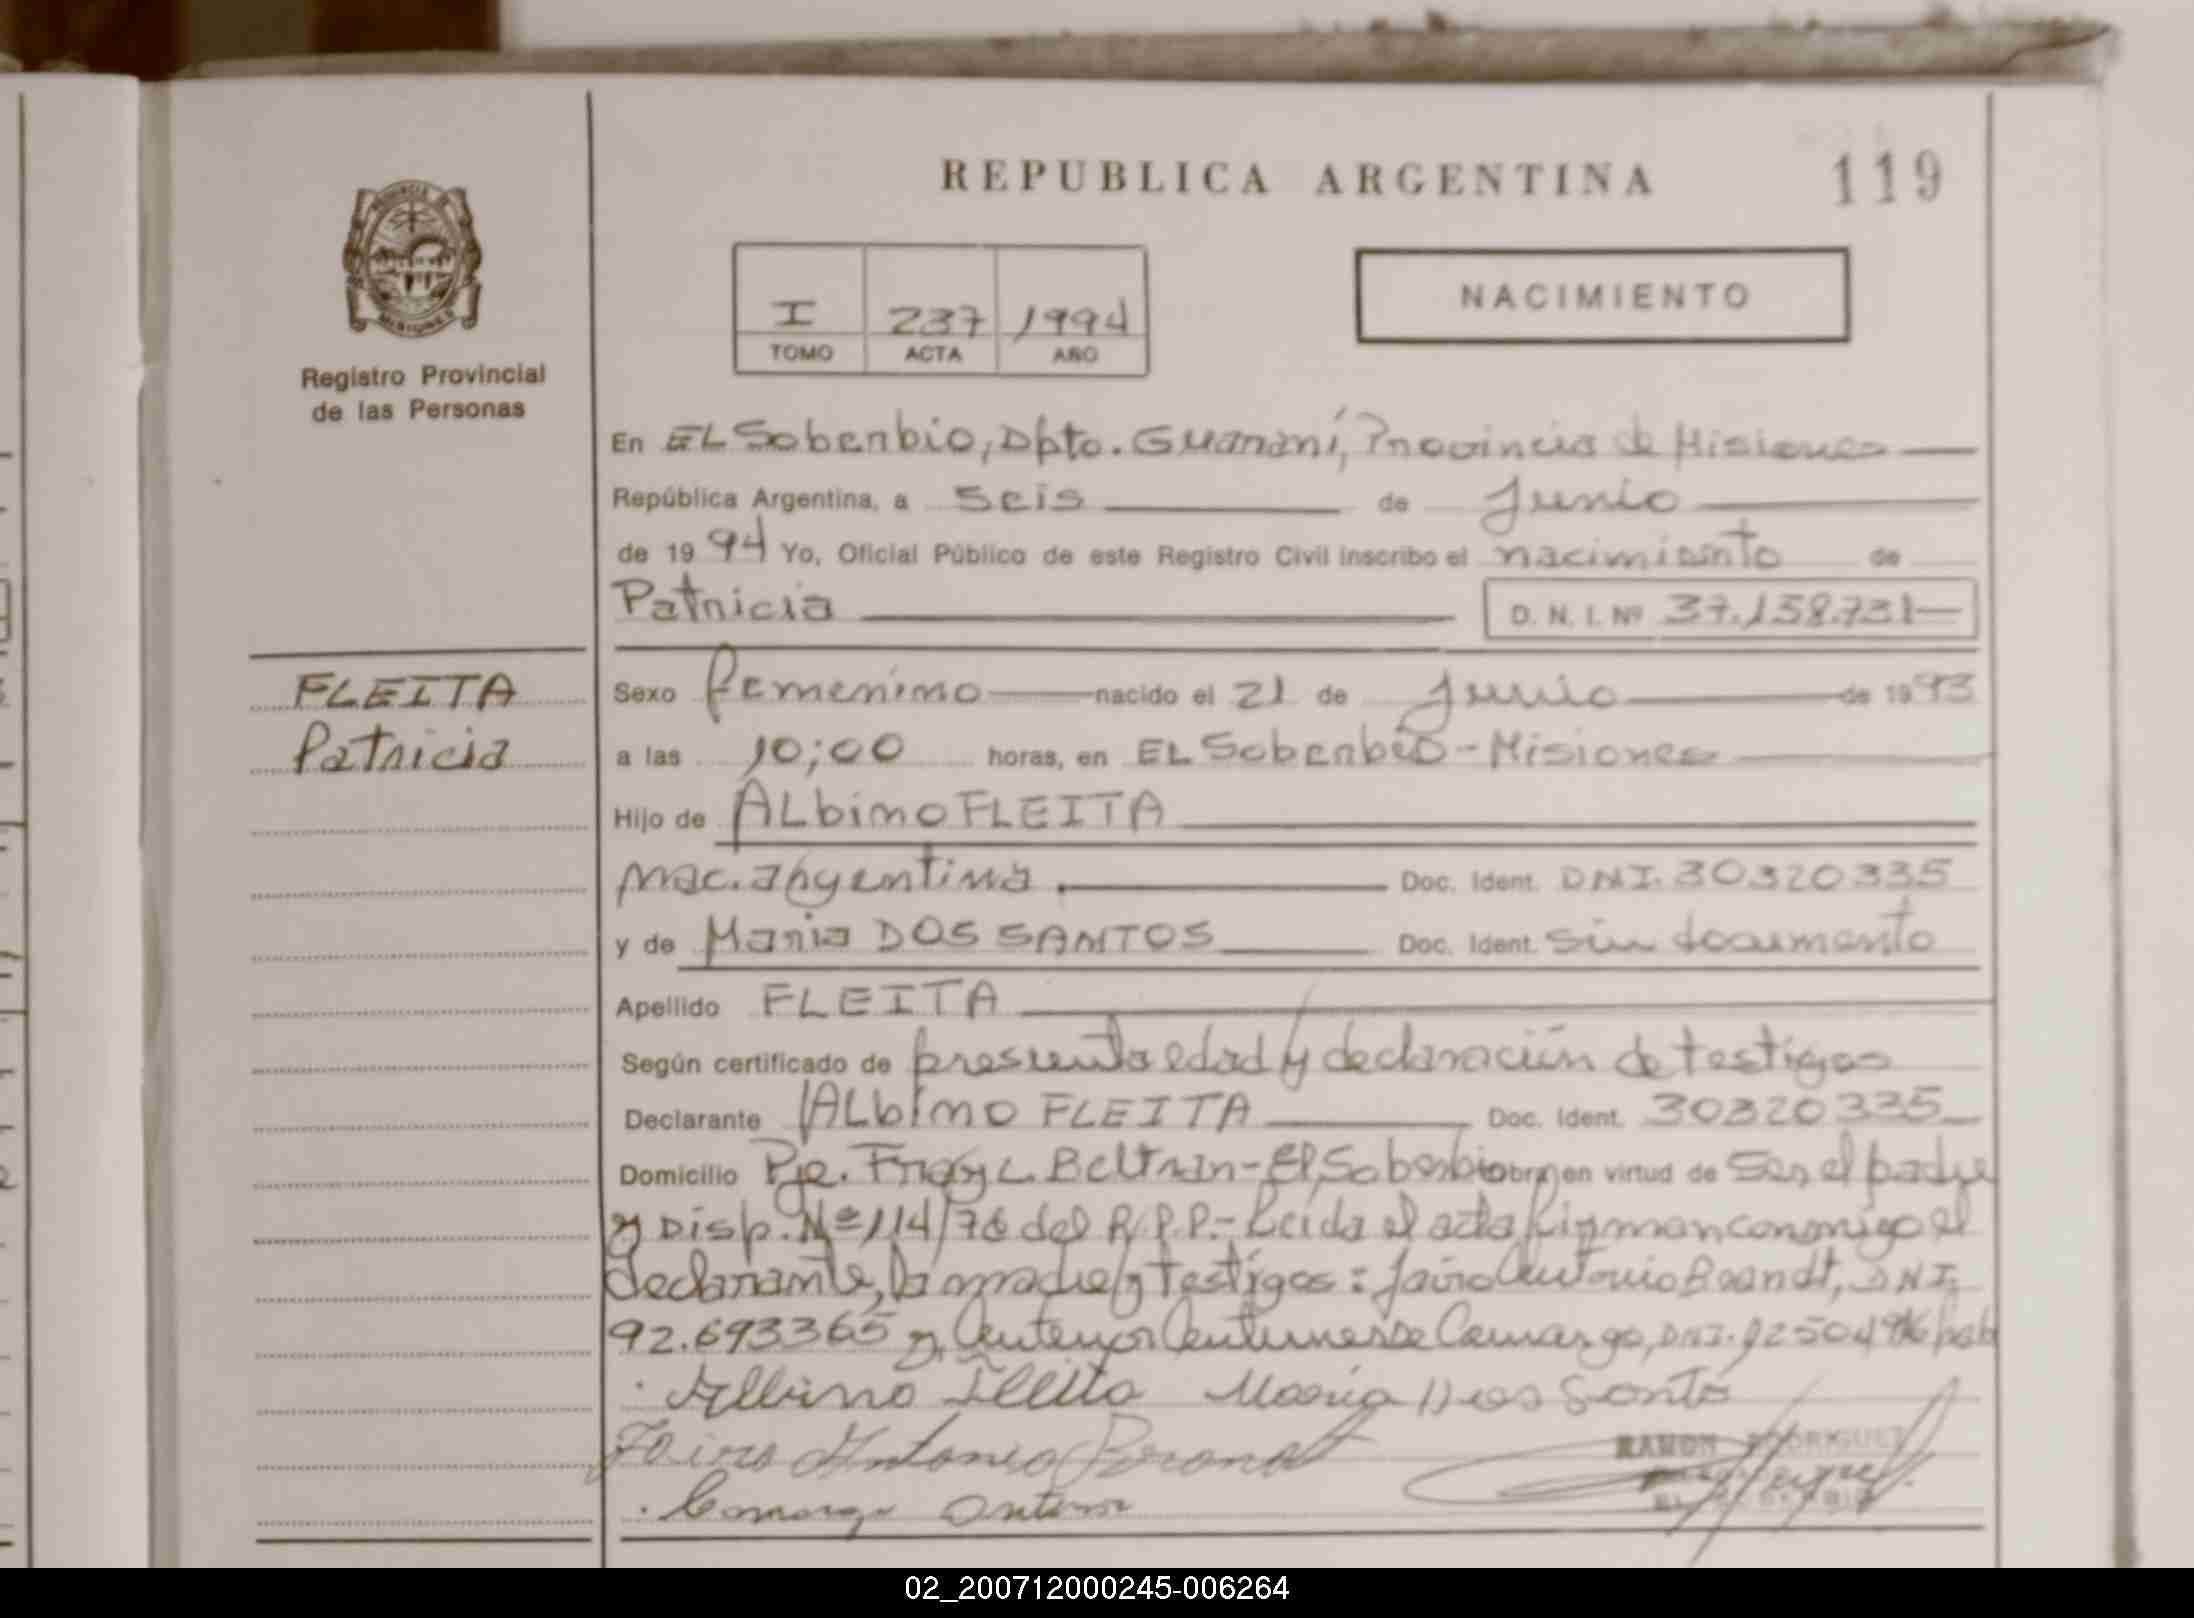 REPUBLICA ARGENTINA
119
PROVINCIA DE
MISIONES
Registro Provincial
de las Personas
I 237 1994
TOMO ACTA AÑO
NACIMIENTO
En EL Soberbio, Dpto. Guaraní, Provincia de Misiones
República Argentina, a seis de Junio
de 1994 Yo, Oficial Público de este Registro Civil inscribo el nacimiento de
Patricia D. N. I. Nº 37.158.731
FLEITA
Patricia
Sexo femenino nacido el 21 de Junio de 1993
a las 10;00 horas, en EL Soberbio - Misiones
Hijo de ALbino FLEITA
nac. argentina. Doc. Ident. DNI. 30320335
y de Maria DOS SANTOS Doc. Ident. sin documento
Apellido FLEITA
Según certificado de presunta edad y declaración de testigos
Declarante ALbino FLEITA Doc. Ident. 30320335
Domicilio Pje. Fray L. Beltran - El Soberbio obra en virtud de ser el padre
y Disp. Nº 114/76 del R.P.P.- Leida el acta firman conmigo el
declarante, la madre y testigos: Jairo Antonio Brandt, DNI.
92.693365 y Antenor Antunes de Camargo, DNI.
Albino Fleita Maria Dos Santo
Jairo Antonio Brandt
RAMON RODRIGUEZ
Camargo Antenor
02_200712000245-006264